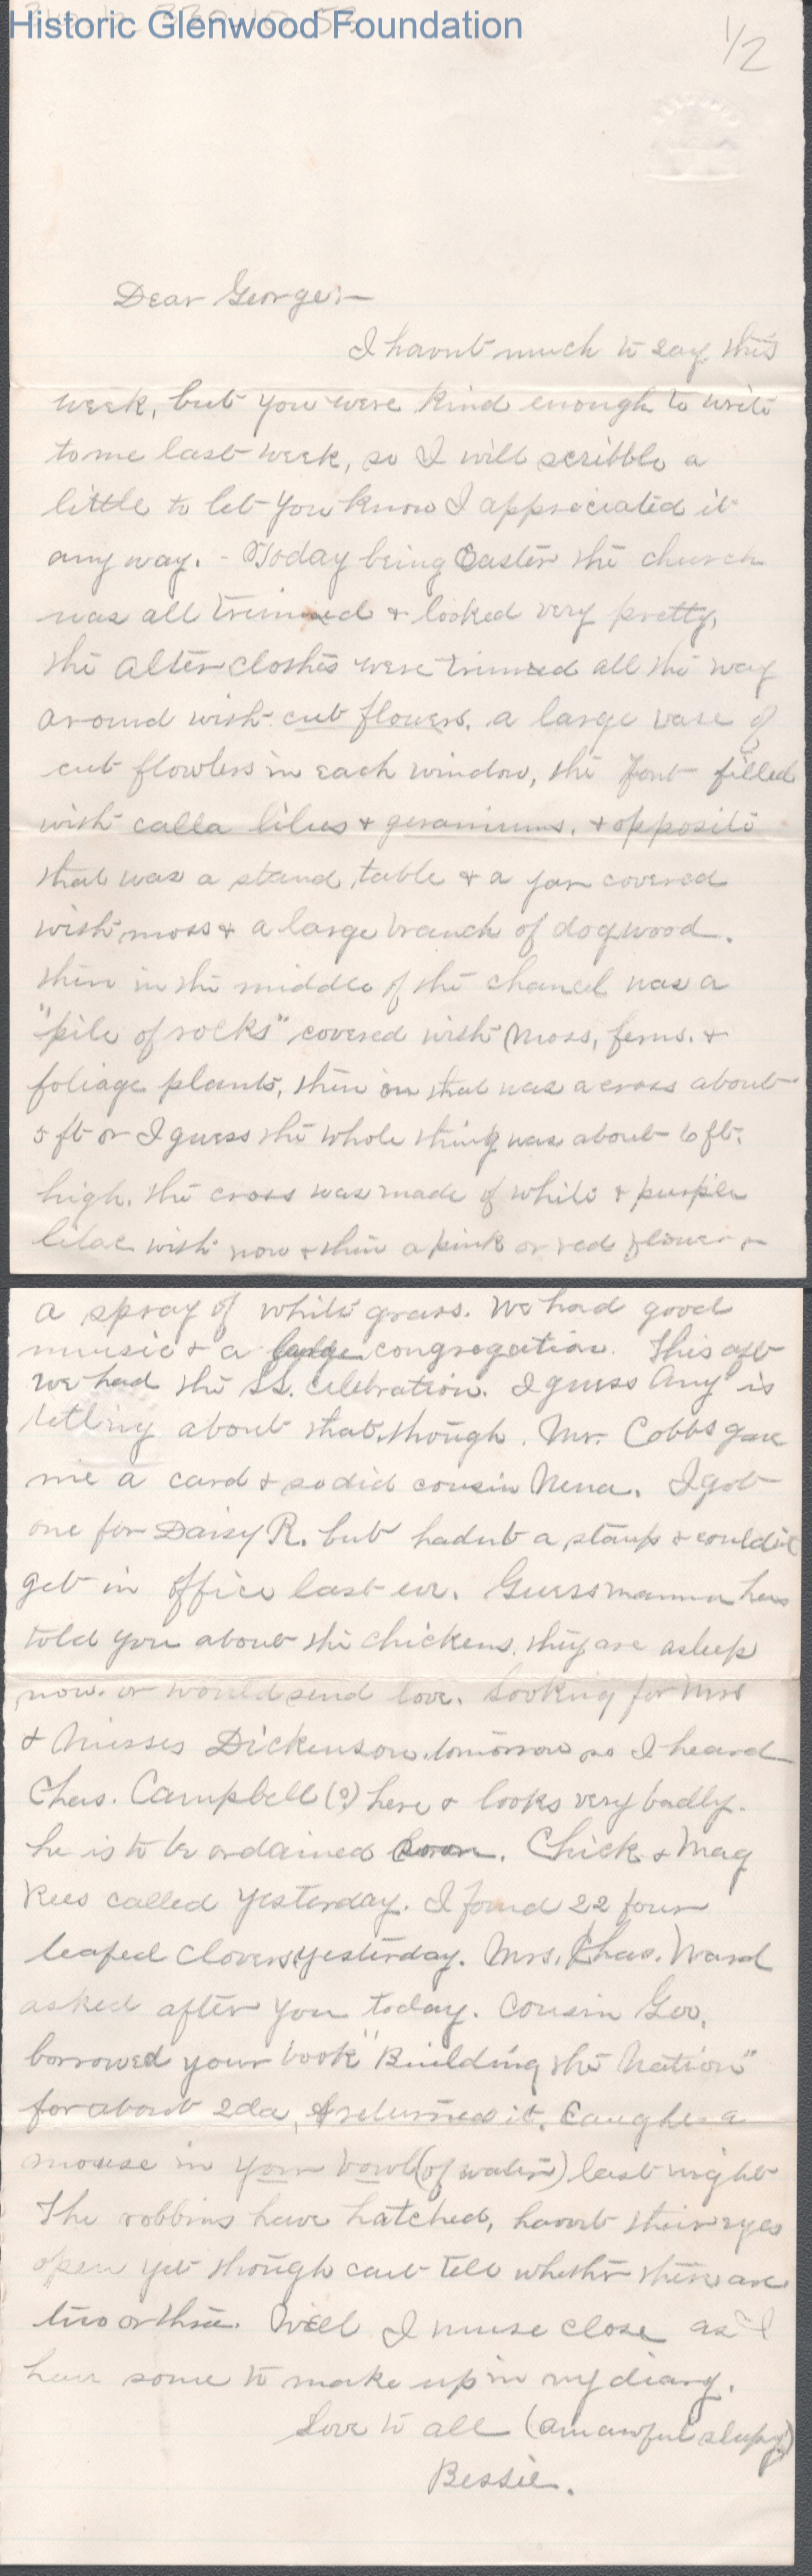 Historic Glenwood Foundation
1/2
Dear George:—
I havnt much to say this
week, but you were kind enough to write
to me last week, so I will scribble a
little to let you know I appreciated it
any way. - Today being Easter the church
was all trimmed & looked very pretty,
the alter clothes were trimmed all the way
around with cut flowers, a large vase of
cut flowers in each window, the font filled
with calla lilies & geraniums, & opposite
that was a stand, table & a jar covered
with moss & a large branch of dogwood.
then in the middle of the chancel was a
"pile of rocks" covered with moss, ferns, &
foliage plants, then on that was a cross about
5 ft or I guess the whole thing was about 6 ft.
high. the cross was made of white & purple
lilac with now & then a pink or red flower &
a spray of white grass. We had good
music & a large congregation. This aft
we had the S.S. celebration. I guess Any is
telling about that, though. Mr. Cobbs gave
me a card & so did cousin Nena. I got
one for Daisy R. but hadnt a stamp & couldnt
get in office last eve. Guess mamma has
told you about the chickens. they are asleep
now. or would send love. Looking for Mrs
& Misses Dickenson tomorrow so I heard
Chas. Campbell (?) here & looks very badly.
he is to be ordained soon. Chick & Mag
Rees called yesterday. I found 22 four
leafed clovers yesterday. Mrs. Chas. Ward
asked after you today. Cousin Geo.
borrowed your book "Building the Nation"
for about 2 da, & returned it. Caught a
mouse in your bowl (of water) last night
The robbins have hatched, havnt their eyes
open yet though cant tell whether there are
two or three. Well I must close as I
have some to make up in my diary.
Love to all (am awful sleepy)
Bessie.